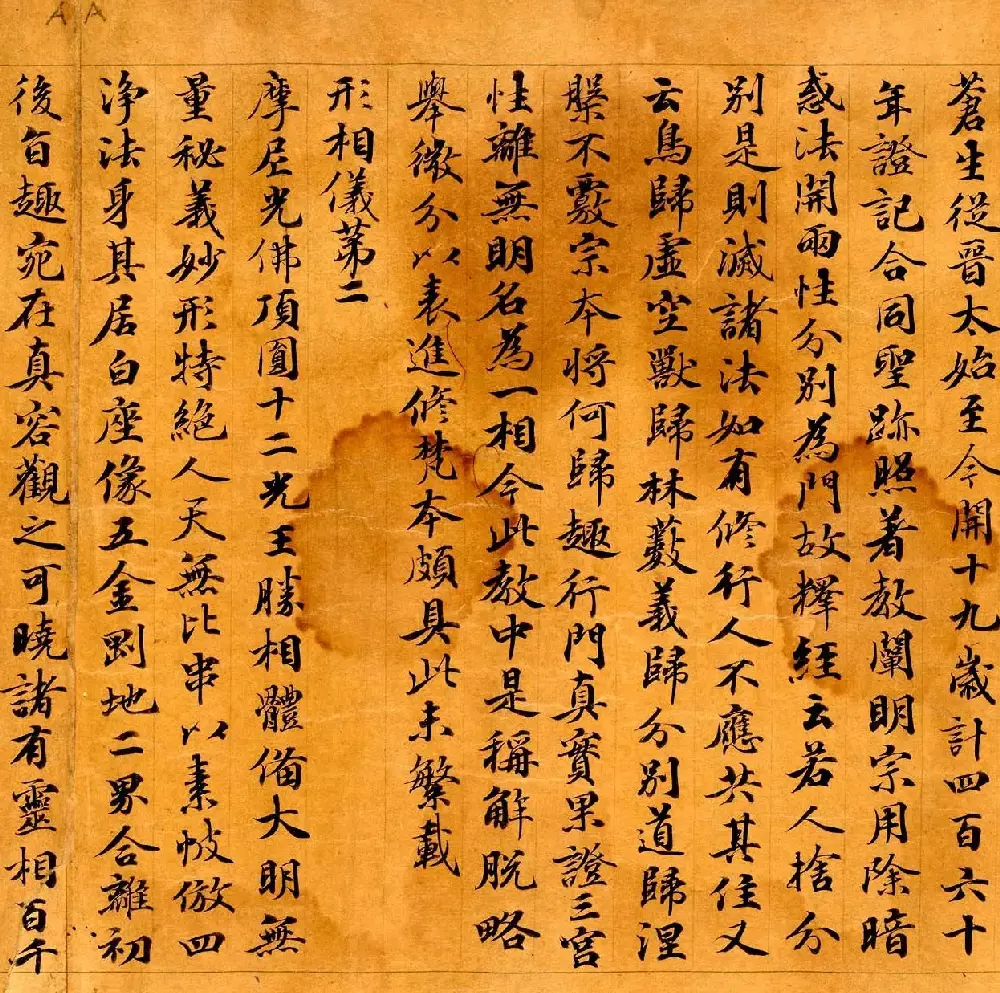 蒼生從晉太始至今開十九歲計四百六十
年證記合同聖跡照著教闡明宗用除暗
惑法開兩性分別為門故釋經云若人捨分
別是則滅諸法如有修行人不應共其住又
云鳥歸虛空獸歸林藪義歸分別道歸涅
槃不覈宗本將何歸趣行門真實果證三宮
性離無明名為一相今此教中是稱解脫略
舉微分以表進修梵本頗具此未繁載
形相儀苐二
摩尼光佛頂圓十二光王勝相體備大明無
量秘義妙形特絕人天無比串以素帔倣四
淨法身其居白座像五金剛地二界合離初
後旨趣宛在真容觀之可曉諸有靈相百千
A A